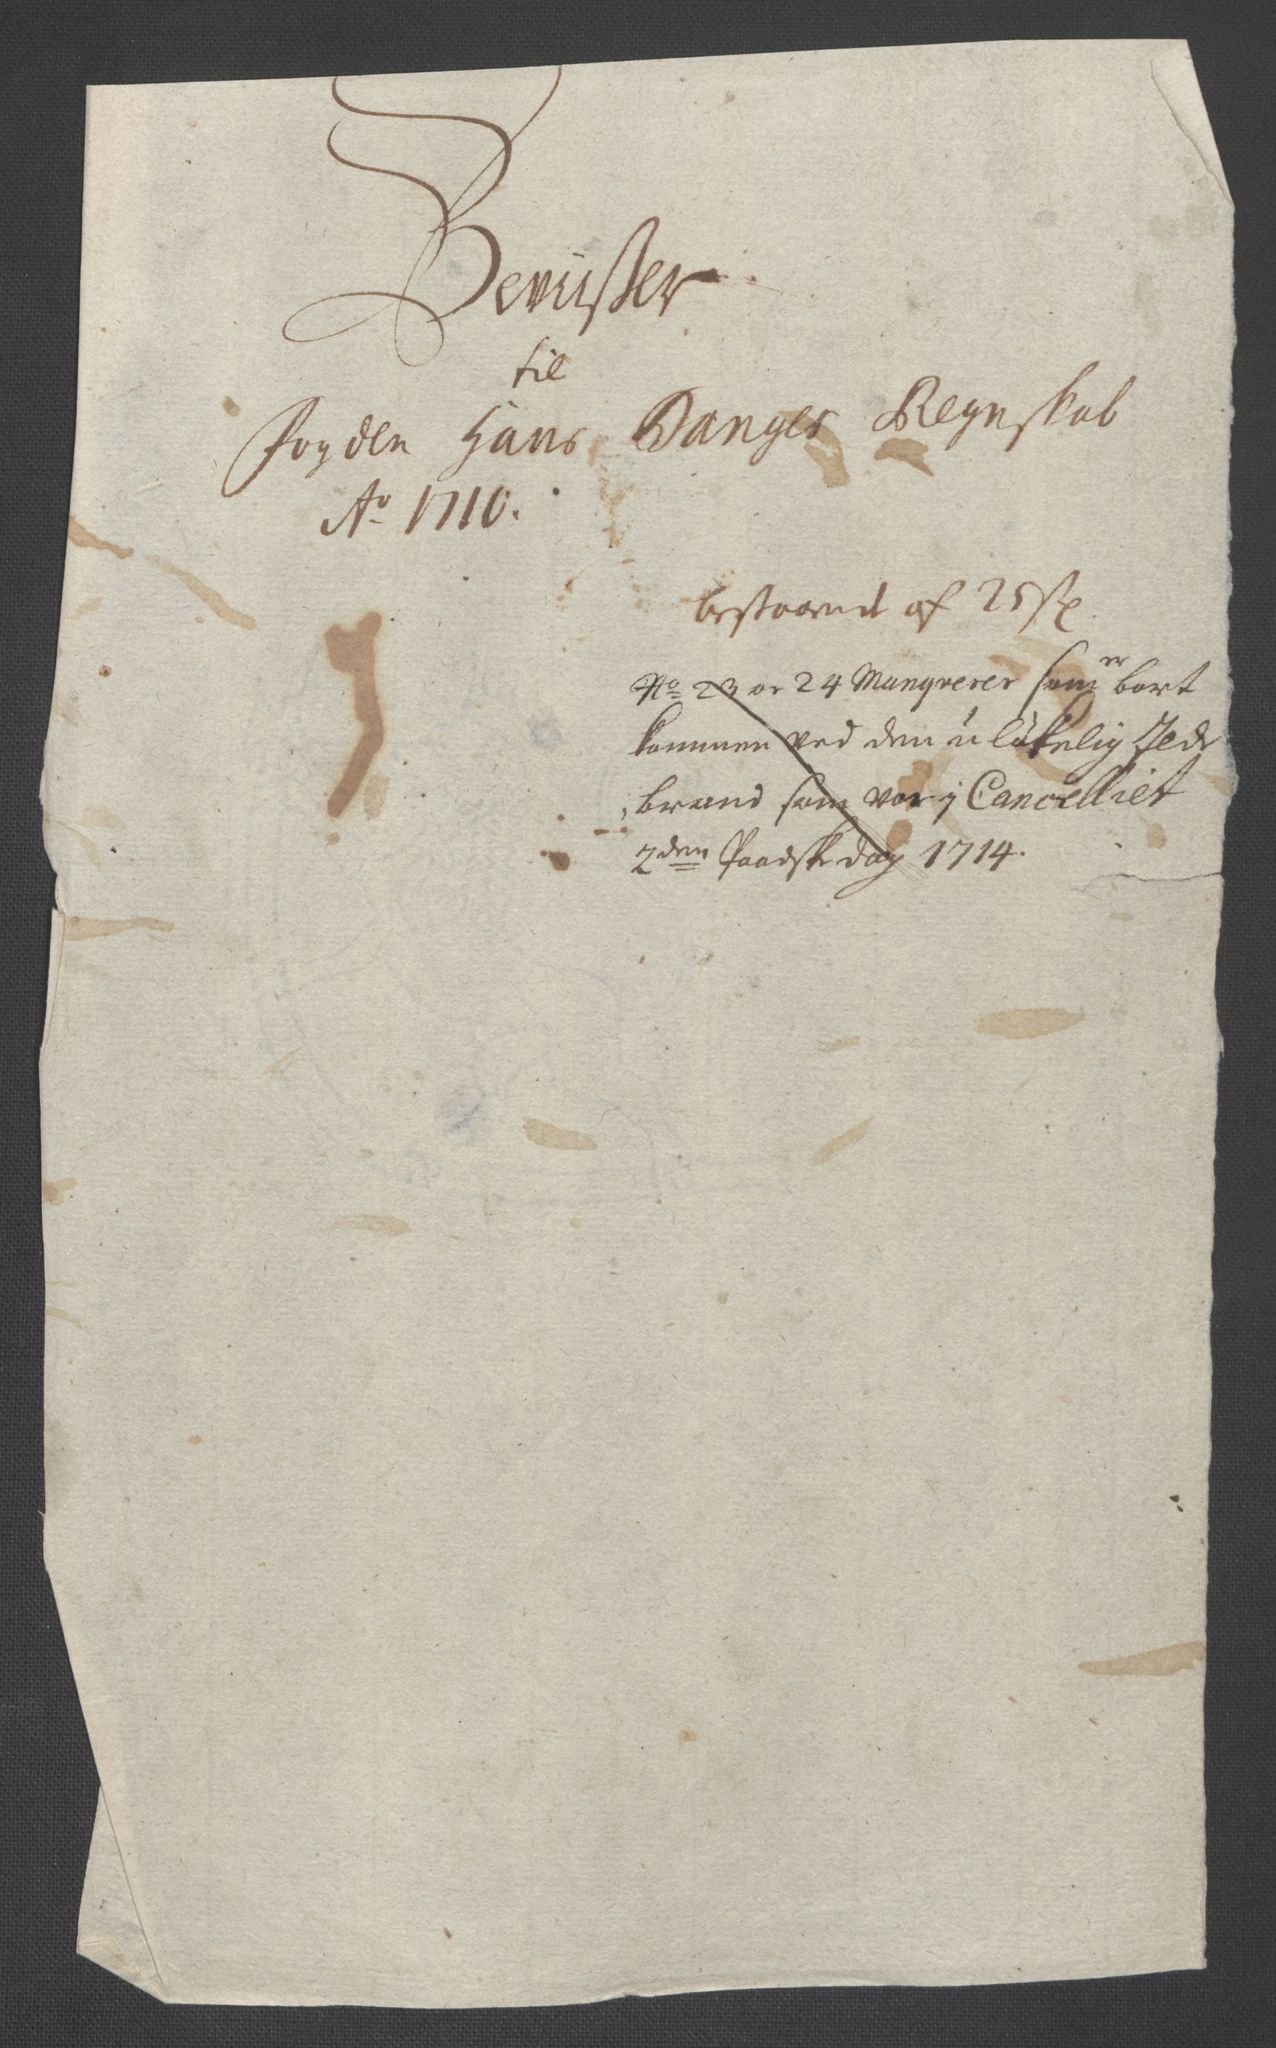 Beviißer
til
Fogden Hans Banges Regnskab
Ao 1710.
bestaaend af 25 st
No 23 oc 24 Manqverer som er bort
kommen ved den ulükelig Ilde
brand som var i Cancelliet
2den Paaskedag 1714.